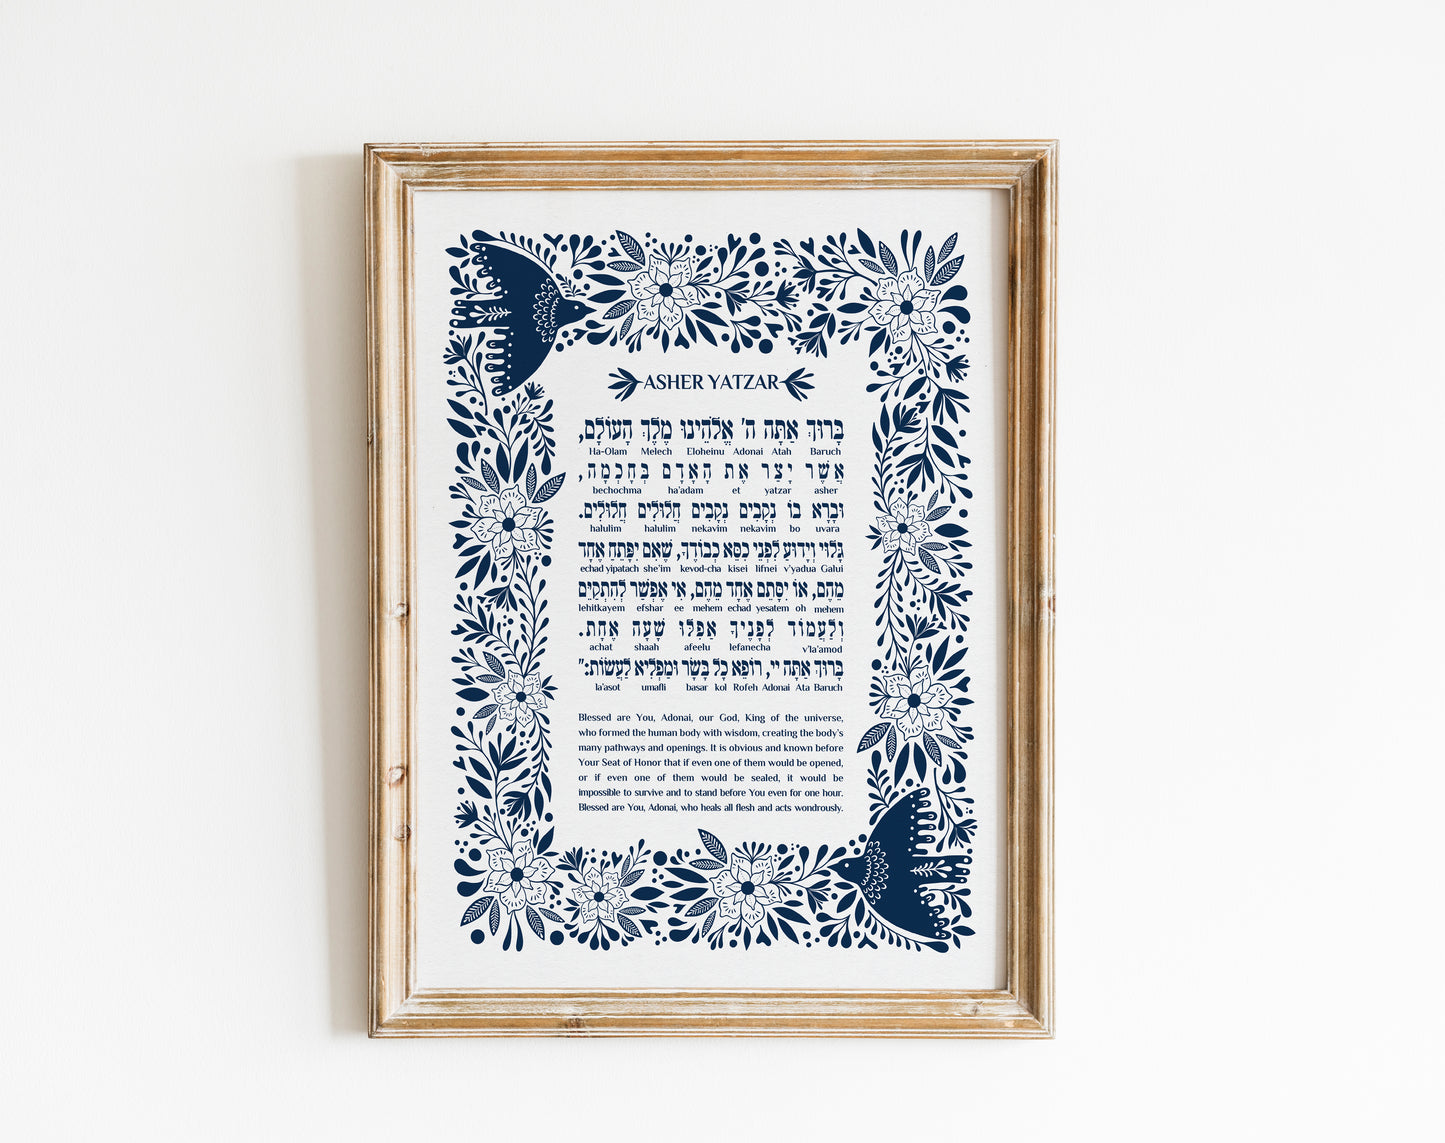 ASHER YATZAR
בָּרוּךְ אַתָּה ה' אֱלֹהֵינוּ מֶלֶךְ הָעוֹלָם,
Ha-Olam Melech Eloheinu Adonai Atah Baruch
אֲשֶׁר יָצַר אֶת הָאָדָם בְּחָכְמָה,
bechochma ha'adam et yatzar asher
וּבָרָא בוֹ נְקָבִים נְקָבִים חֲלוּלִים חֲלוּלִים.
halulim halulim nekavim nekavim bo uvara
גָּלוּי וְיָדוּעַ לִפְנֵי כִסֵּא כְבוֹדֶךָ, שֶׁאִם יִפָּתֵחַ אֶחָד
echad yipatach she'im kevod-cha kisei lifnei v'yadua Galui
מֵהֶם, אוֹ יִסָּתֵם אֶחָד מֵהֶם, אִי אֶפְשַׁר לְהִתְקַיֵּם
lehitkayem efshar ee mehem echad yesatem oh mehem
וְלַעֲמוֹד לְפָנֶיךָ אַפִלּוּ שָׁעָה אֶחָת.
achat shaah afeelu lefanecha v'la'amod
בָּרוּךְ אַתָּה יי, רוֹפֵא כָל בָּשָׂר וּמַפְלִיא לַעֲשׂוֹת:"
la'asot umafli basar kol Rofeh Adonai Ata Baruch
Blessed are You, Adonai, our God, King of the universe,
who formed the human body with wisdom, creating the body's
many pathways and openings. It is obvious and known before
Your Seat of Honor that if even one of them would be opened,
or if even one of them would be sealed, it would be
impossible to survive and to stand before You even for one hour.
Blessed are You, Adonai, who heals all flesh and acts wondrously.